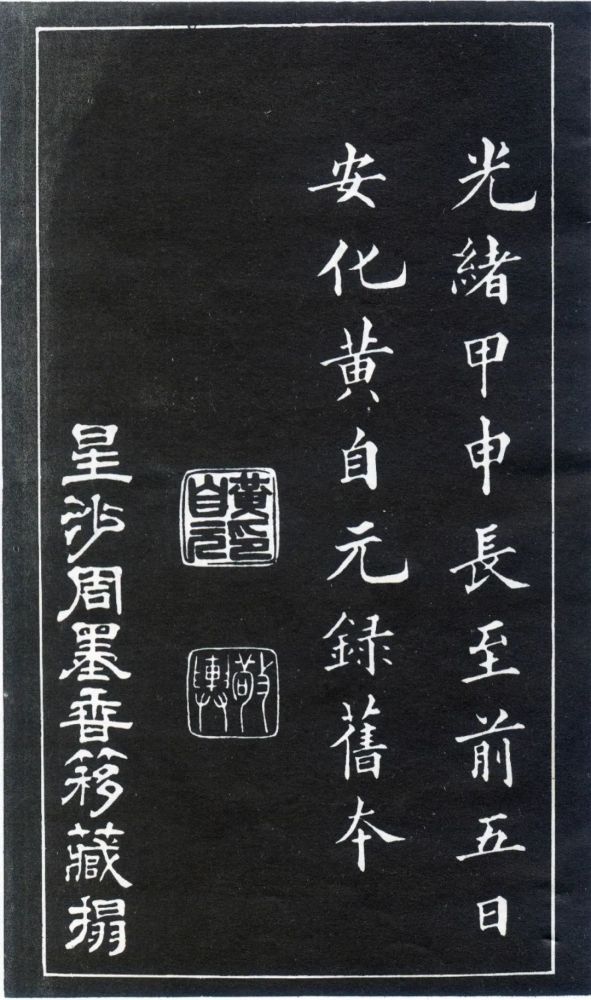 光緒甲申長至前五日
安化黄自元録舊本
黃自元印
敬輿
星沙周墨香簃藏搨